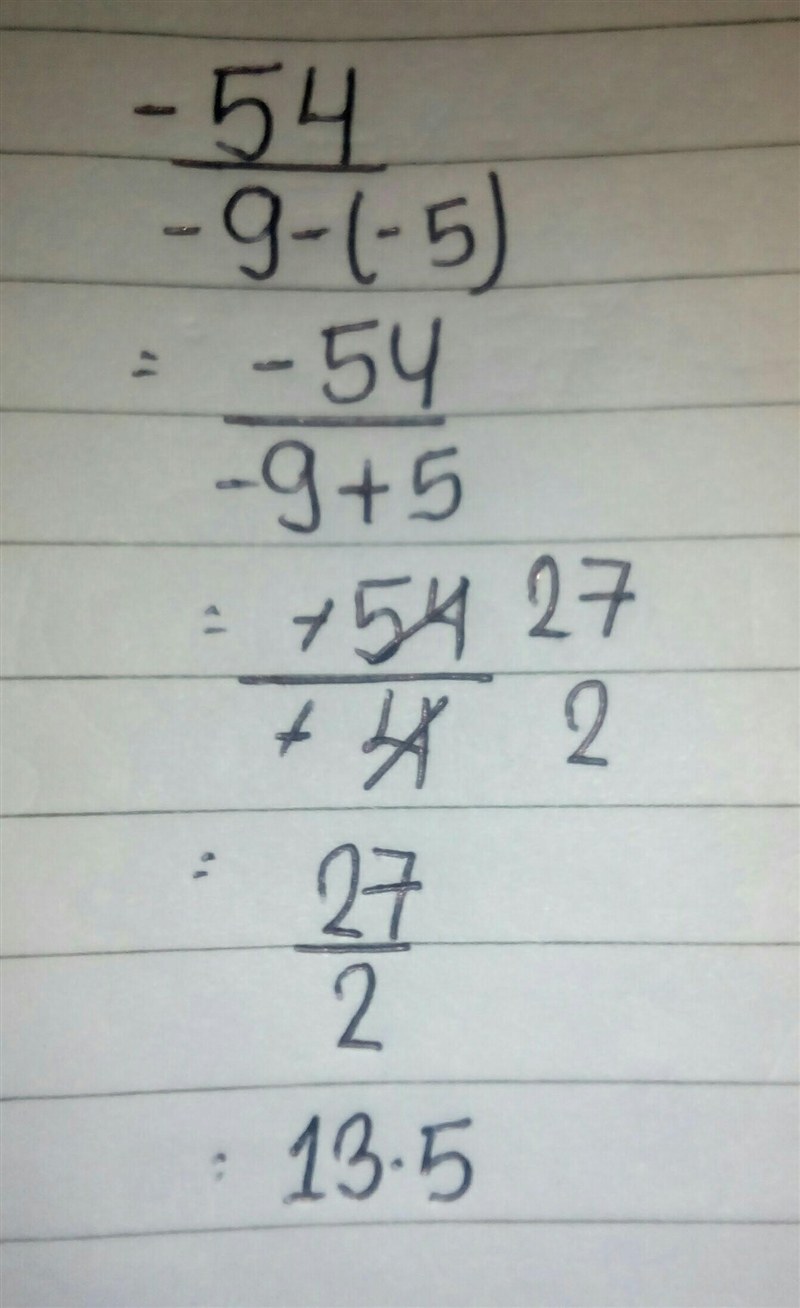 -54
-9-(-5)
= -54
-9+5
= +54 27
+4 2
= 27
2
= 13.5